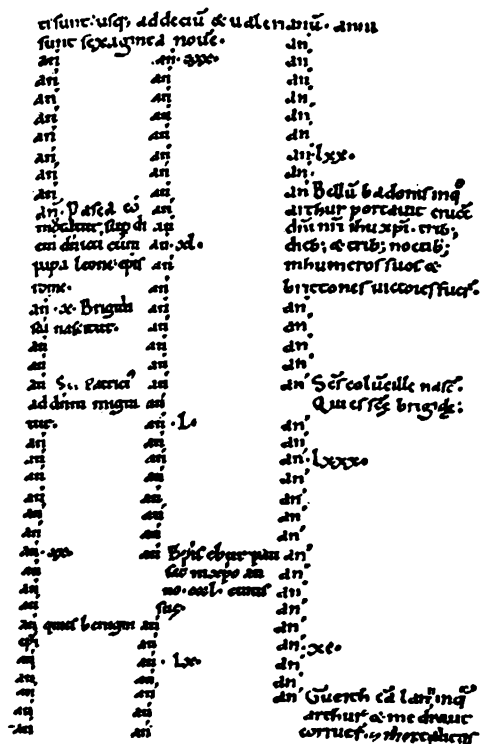 tisunt: usq; addeciũ & ualerianũ. anni
sunt sexaginta noue.
an̄
an̄
an̄
an̄
an̄
an̄
an̄
an̄
an̄. Pasca cō
mutatur sup di
em dnicā cum
papa leone. epis
rome.
an̄. x. Brigida
scā nascitur.
an̄
an̄
an̄ Sc̄s Patrici'
ad dnm migra
tur.
an̄
an̄
an̄
an̄
an̄
an̄
an̄. xx.
an̄
an̄
an̄
an̄ quies benigni
epi.
an̄
an̄
an̄
an̄
an̄
an̄. xxx.
an̄
an̄
an̄
an̄
an̄
an̄
an̄
an̄
an̄
an̄. xl.
an̄
an̄
an̄
an̄
an̄
an̄
an̄
an̄
an̄. L.
an̄
an̄
an̄
an̄
an̄
an̄
an̄ Epis ebur pau
sat in xp̄o an
no. cccl. etatis
sue.
an̄
an̄
an̄. Lx.
an̄
an̄
an̄
an̄
an̄
an̄
an̄
an̄
an̄
an̄
an̄. lxx.
an̄
an̄ Bellū badonis inq°
arthur portauit crucē
dn̄i nr̄i ihu xp̄i. trib;
dieb; & trib; noctib;
inhumeros suos &
brittones uictores fuer̄.
an̄
an̄
an̄
an̄
an̄ Sc̄s colūcille nasc̄.
Quies sc̄e brigidę:
an̄
an̄
an̄. lxxx.
an̄
an̄
an̄
an̄
an̄
an̄
an̄
an̄
an̄
an̄. xc.
an̄
an̄
an̄ Gueith cālann inq°
arthur & medraut
corruer̄. & mortalitas